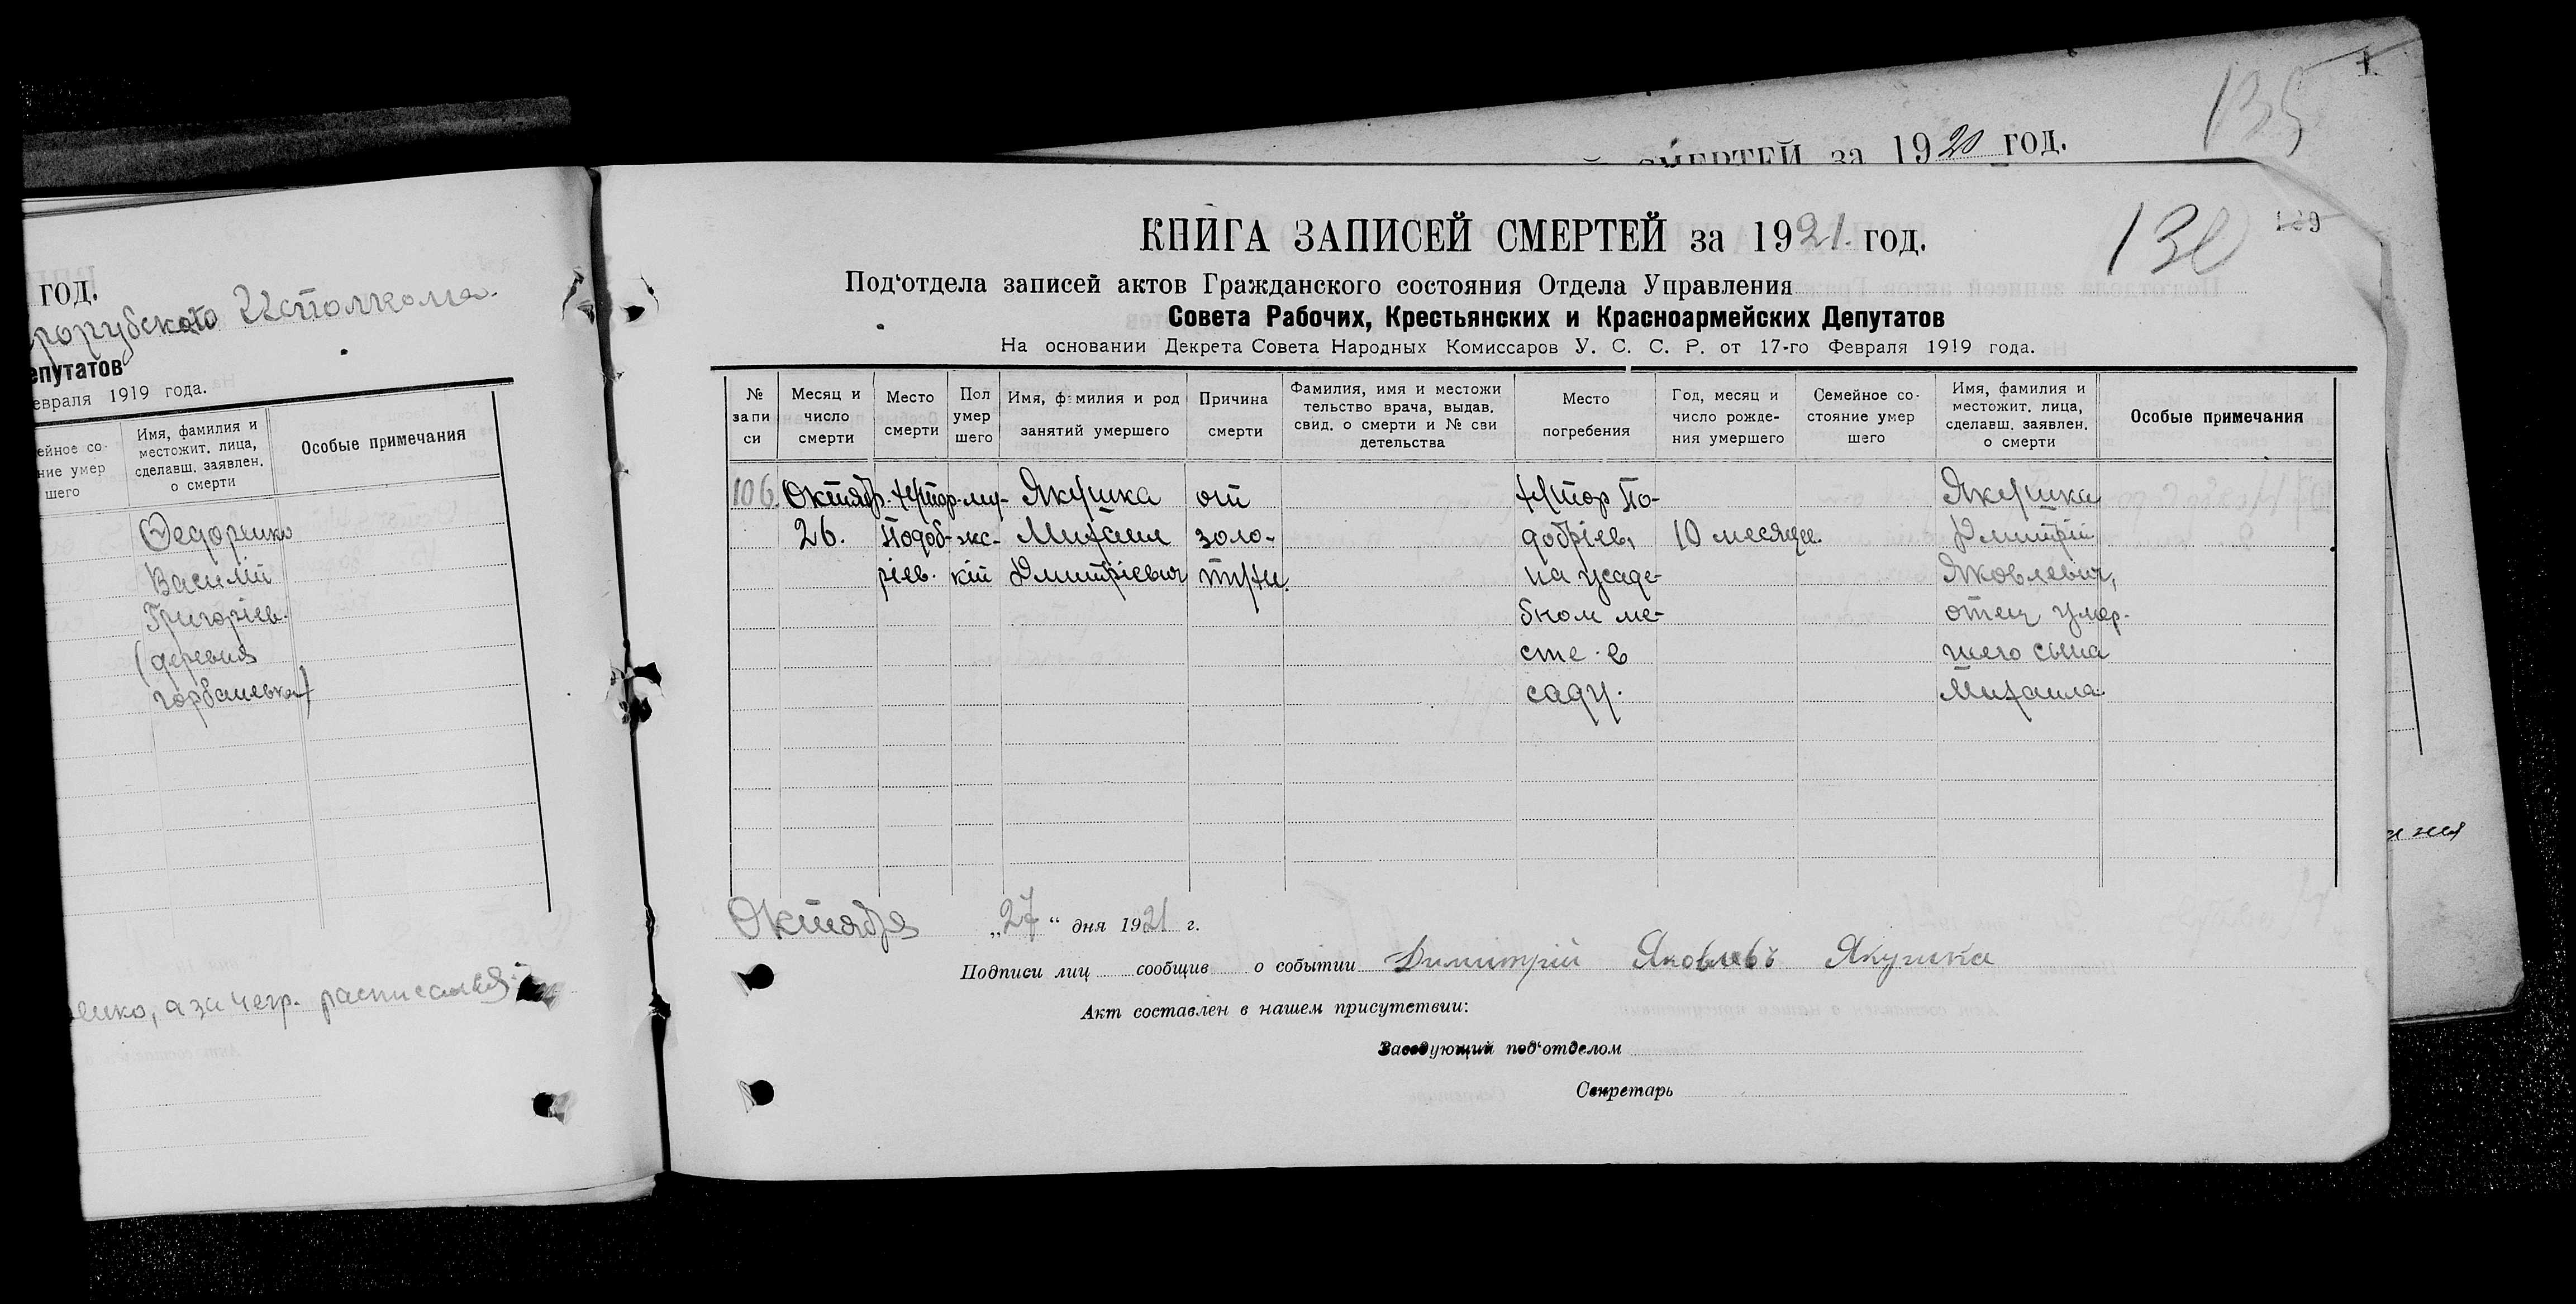 135
1
СМЕРТЕЙ за 1920 год.
год.
Исполкома.
епутатов
евраля 1919 года.
ейное со-
ние умер
шего
Имя, фамилия и
местожит. лица,
сделавш. заявлен.
о смерти
Особые примечания
Федоренко
Василій
Григоріев.
(деревня
Горбаневка)
енко, а за негр. расписался
КНИГА ЗАПИСЕЙ СМЕРТЕЙ за 1921. год.
130
Под‘отдела записей актов Гражданского состояния Отдела Управления
Совета Рабочих, Крестьянских и Красноармейских Депутатов
На основании Декрета Совета Народных Комиссаров У. С. С. Р. от 17-го Февраля 1919 года.
№
запи
си
Месяц и
число
смерти
Место
смерти
Пол
умер
шего
Имя, фамилия и род
занятий умершего
Причина
смерти
Фамилия, имя и местожи
тельство врача, выдав.
свид. о смерти и № сви
детельства
Место
погребения
Год, месяц и
число рожде-
ния умершего
Семейное со-
стояние умер
шего
Имя, фамилия и
местожит. лица,
сделавш. заявлен.
о смерти
Особые примечания
106.
Октябр.
26.
Хутор
Подоб-
ріев.
му-
жс-
кій
Якушка
Михаил
Дмитріевич
от
золо-
тухи.
Хутор По-
добріев,
на усаде-
бном ме-
сте в
саду.
10 месяцев.
Якушка
Дмитрій
Яковлевич,
отец умер-
шего сына
Михаила.
Октября „27“ дня 1921 г.
Подписи лиц сообщив о событии Димитрій Яковлевъ Якушка
Акт составлен в нашем присутствии:
Заведующий под‘отделом
Секретарь